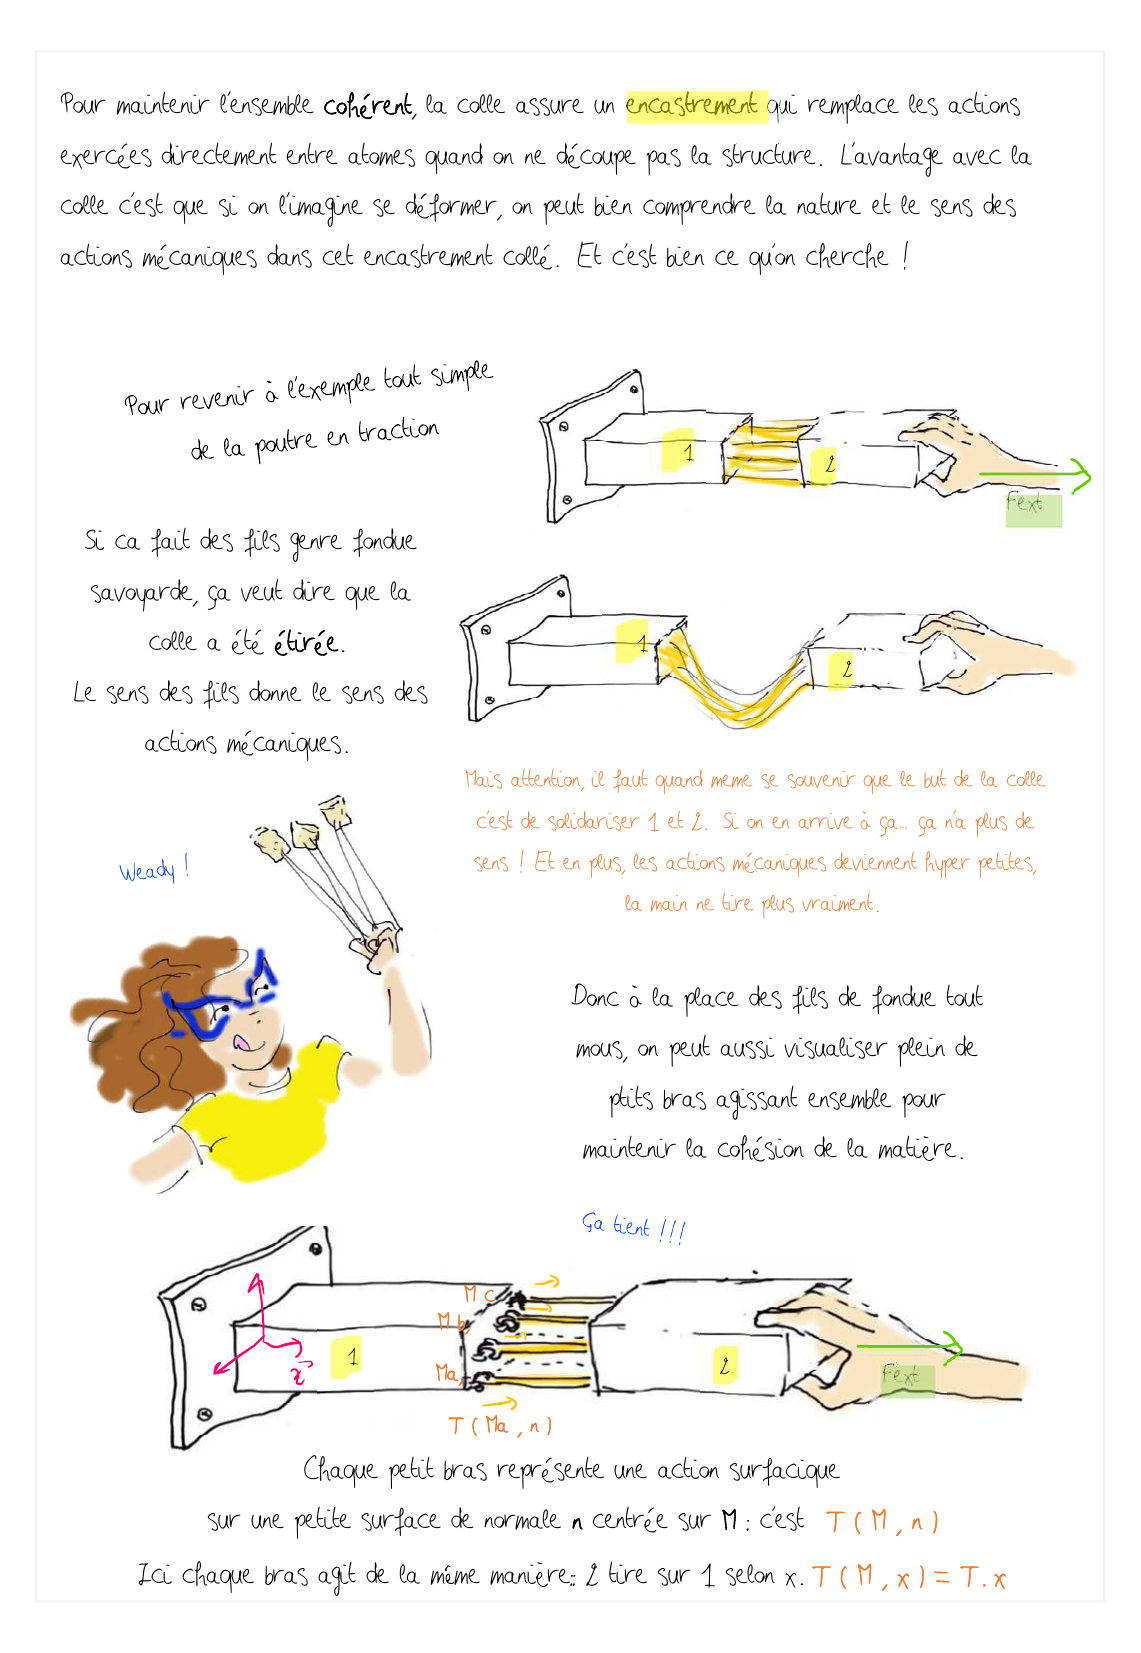 Pour maintenir l'ensemble cohérent, la colle assure un encastrement qui remplace les actions
exercées directement entre atomes quand on ne découpe pas la structure. L'avantage avec la
colle c'est que si on l'imagine se déformer, on peut bien comprendre la nature et le sens des
actions mécaniques dans cet encastrement collé. Et c'est bien ce qu'on cherche !
Pour revenir à l'exemple tout simple
de la poutre en traction
1
2
Fext
Si ca fait des fils genre fondue
savoyarde, ça veut dire que la
colle a été étirée.
Le sens des fils donne le sens des
actions mécaniques.
1
2
Mais attention, il faut quand meme se souvenir que le but de la colle
c'est de solidariser 1 et 2. Si on en arrive à ça... ça n'a plus de
sens ! Et en plus, les actions mécaniques deviennent hyper petites,
la main ne tire plus vraiment.
Weady !
Donc à la place des fils de fondue tout
mous, on peut aussi visualiser plein de
ptits bras agissant ensemble pour
maintenir la cohésion de la matière.
Ça tient !!!
Mc
Mb,
Ma,
x
1
2
Fext
T(Ma,n)
Chaque petit bras représente une action surfacique
sur une petite surface de normale n centrée sur M : c'est T(M,n)
Ici chaque bras agit de la même manière:: 2 tire sur 1 selon x. T(M,x)=T.x